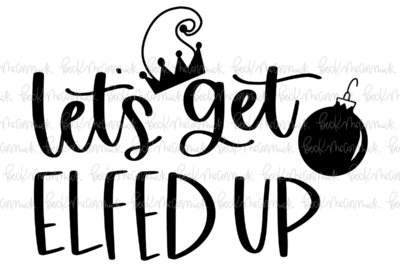 let's get
ELFED UP